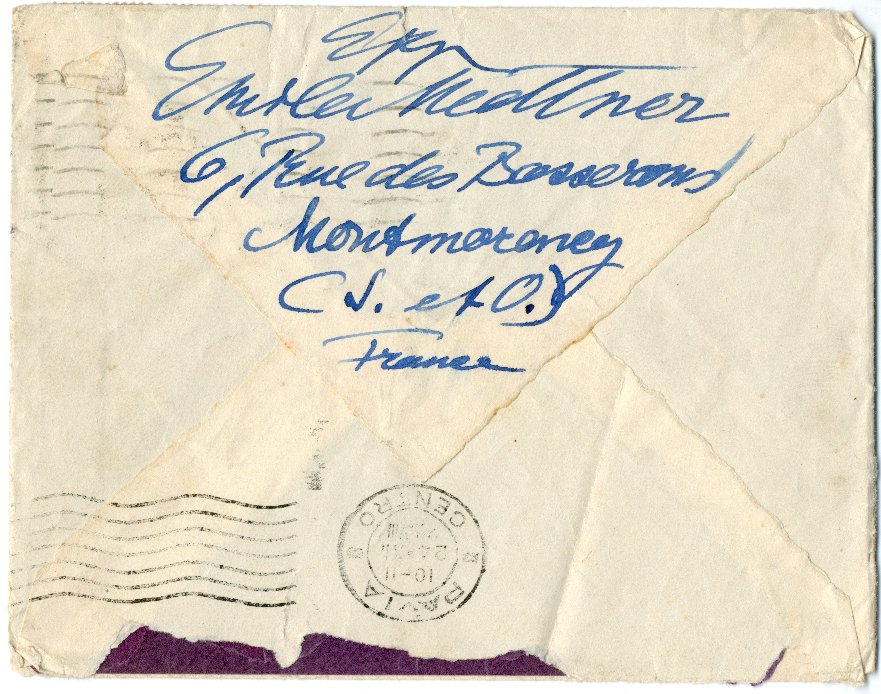 Exp.
Emilei Medtner
6, Rue des Basserons
Montmorency
(S. et O.)
France
PAVIA
CENTRO
10-11
24